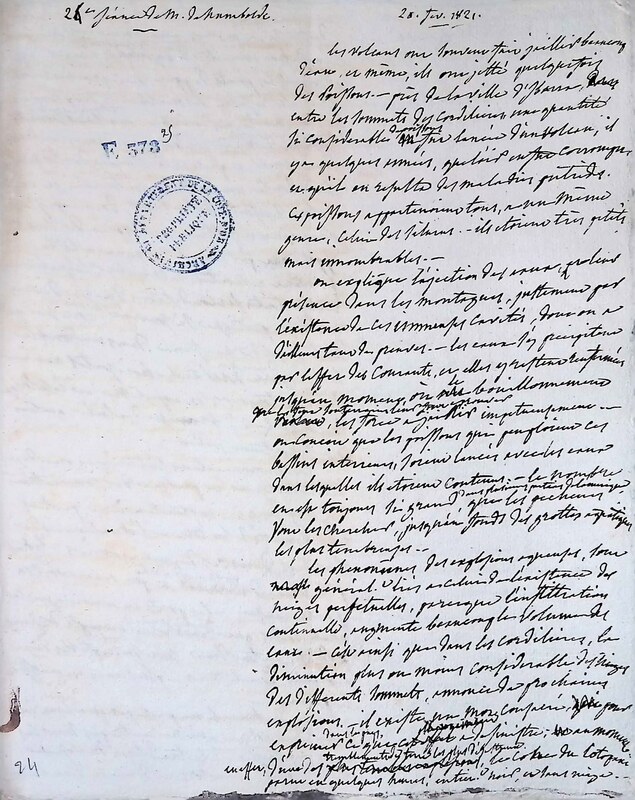 2e séance de M. de Humboldt.
28. fev. 1821.
les volcans ont souvent fait jaillir beaucoup
d'eau, et même, ils ont jetté quelquefois
des poissons. — près de la ville d'Ibarra,
entre les sommets des Cordilières, une quantité
si considérable de poissons fut lancée d'un volcan, il
y a quelques années, que l'air en fut corrompu,
et qu'il en resulta des maladies putrides.
ces poissons appartenoient tous, à un même
genre, celui des silures. — ils étoient très petits
mais innombrables. —
F 373
25
ARCHIVES DU DÉPARTEMENT DE LA CÔTE-D'OR
PROPRIÉTÉ
PUBLIQUE
on explique l'éjection des eaux, et leur
présence dans les montagnes, justement par
l'existence de ces immenses cavités, dont on a
d'ailleurs tant de preuves. — les eaux s'y précipitent
par l'effet des courants, et elles y restent renfermées
jusqu'au moment, où le bouillonnement
les force à jaillir impétueusement. —
on conçoit que les poissons qui peuploient ces
bassins intérieurs, soient lancés avec les eaux
dans lesquelles ils étoient contenus. — le nombre
en est toujours si grand que les pêcheurs
vont les chercher, jusqu'au fond des grottes
les plus ténébreuses. —
les phénomènes des explosions aqueuses, sont
en général liés à celui de l'existence des
neiges perpétuelles, parceque l'infiltration
continuelle, augmente beaucoup le volume des
eaux. — c'est ainsi que dans les cordilières, la
diminution plus ou moins considérable des neiges
des différents sommets, annonce de prochaines
explosions. — il existe un mot consacré, pour
exprimer ce que cet a de sinistre. au moment
en effet, d'une des le cône du Cotopaxi
parut en quelques heures, entièrt noir et sans neige. —
24